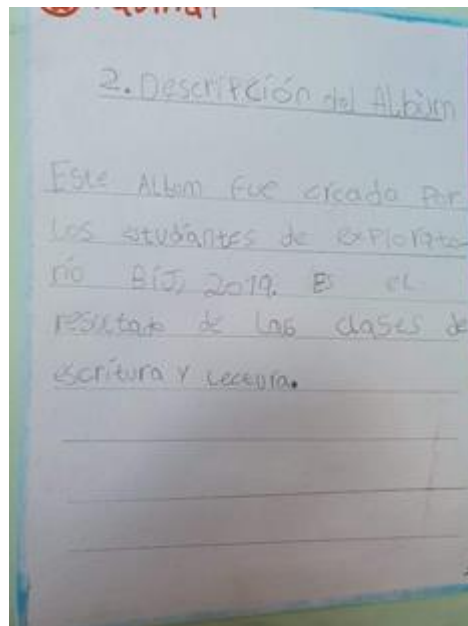 2. Descripción del Album
Este Album fue creado Por
Los estudiantes de explorato
rio 2019. Es el
resultado de las clases de
escritura y Lectura.